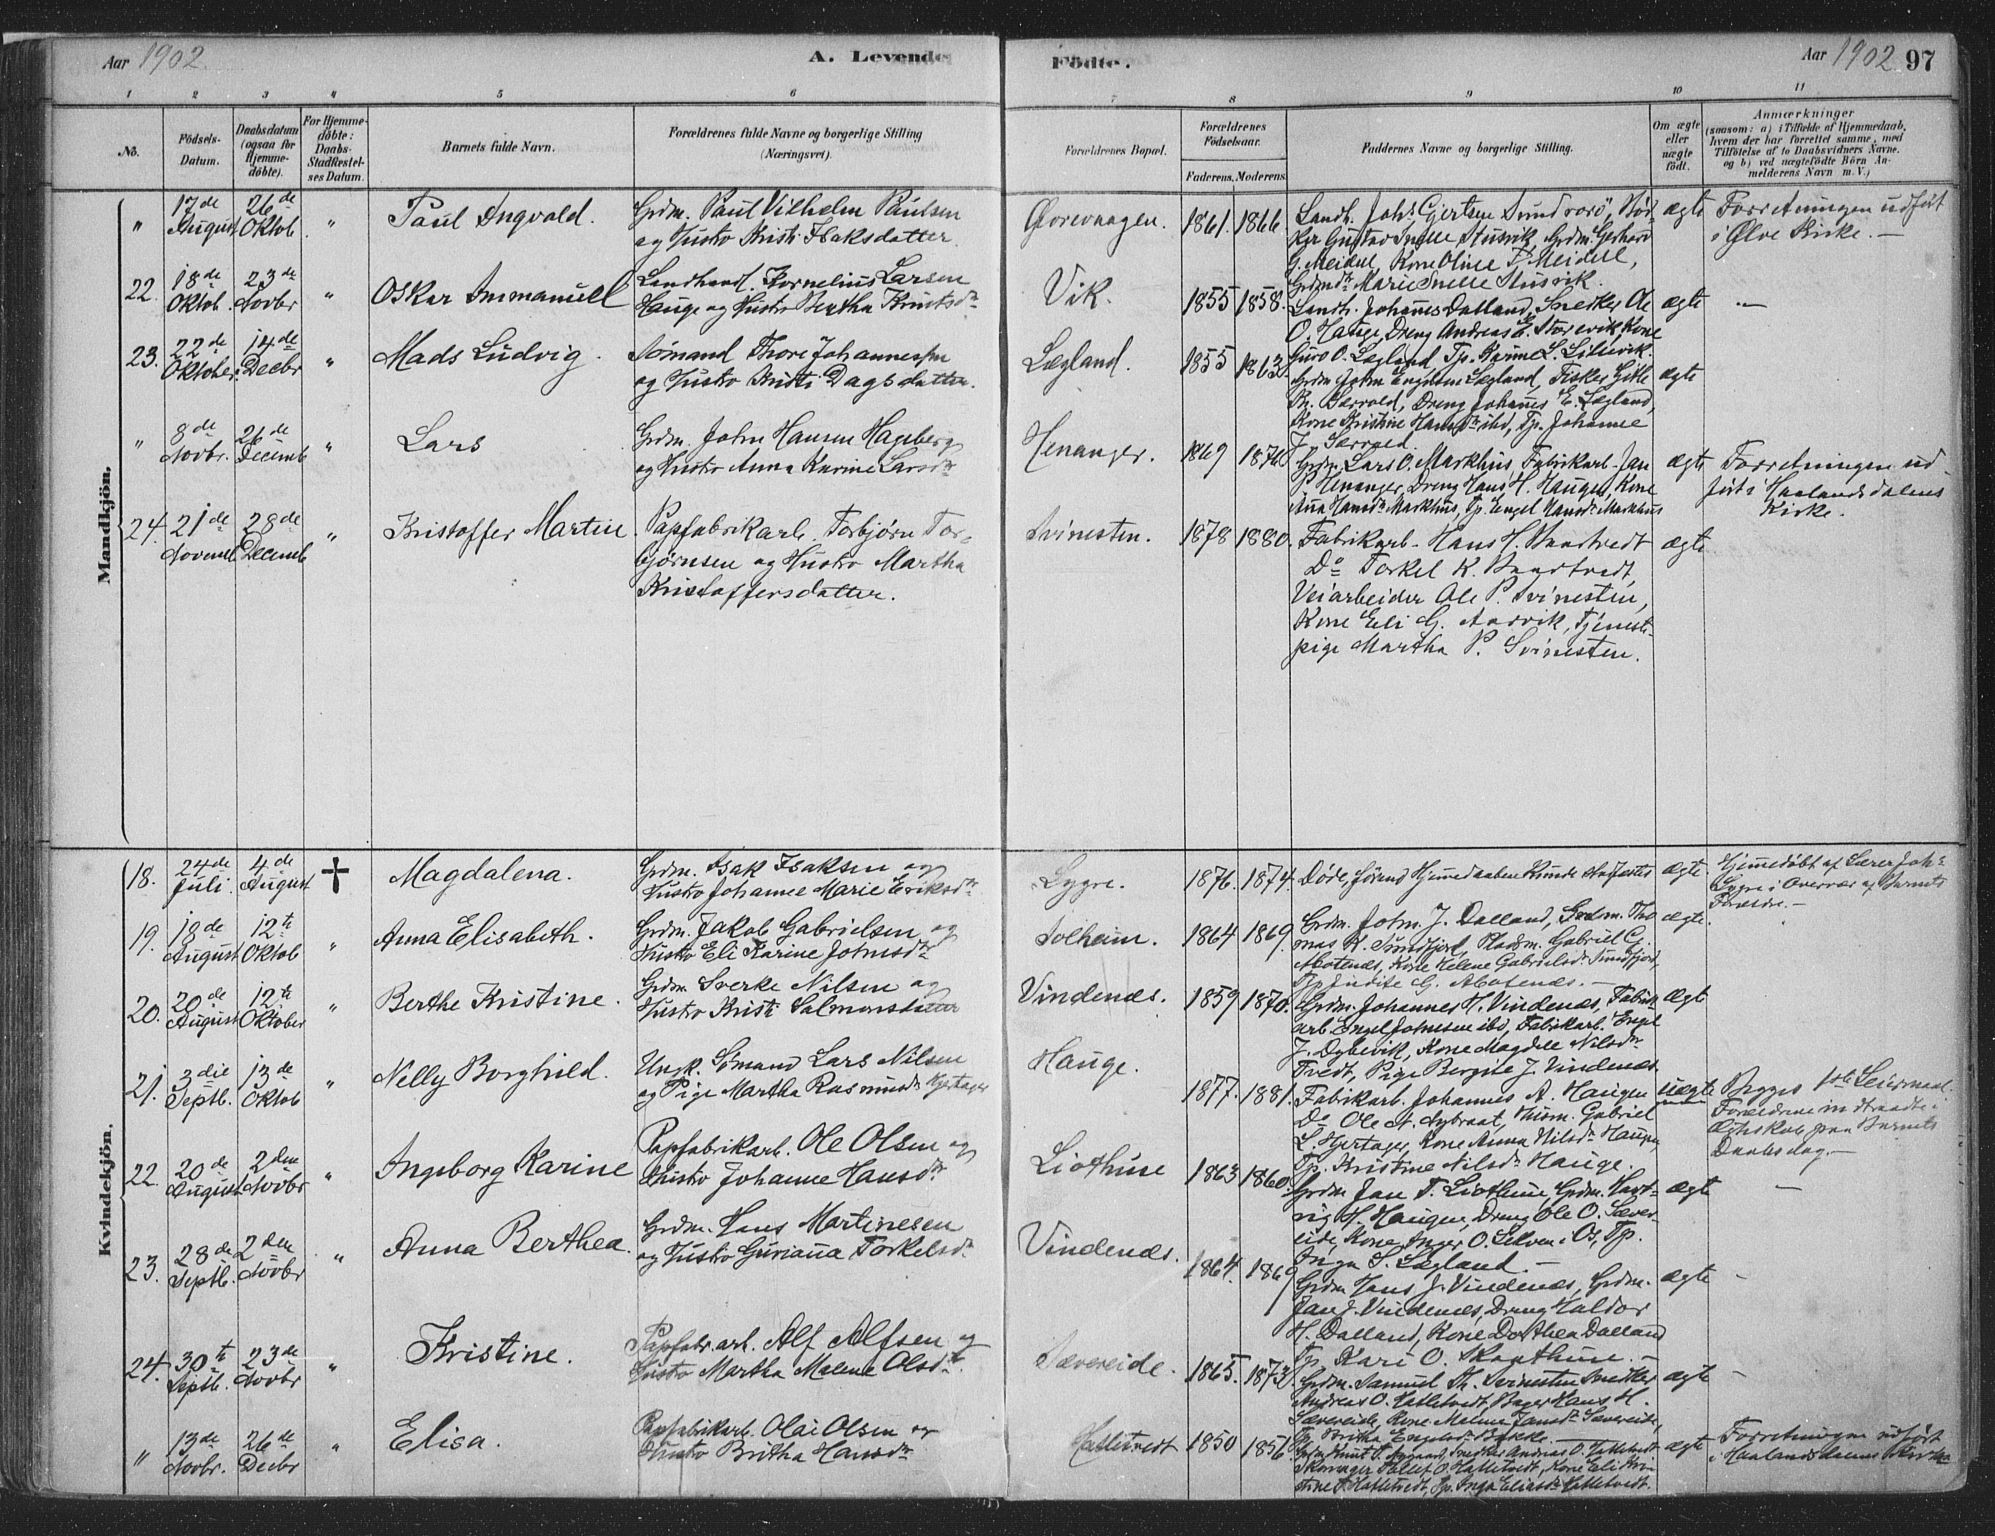 Aar 1902.
A. Levende
Födte.
Aar 1902
97
1 2 3 4 5 6 7 8 9 10 11
No.
Födsels-
Datum.
Daabsdatum
(ogsaa for
Hjemme-
döbte).
For Hjemme-
döbte:
Daabs-
Stadfæstel-
ses Datum.
Barnets fulde Navn.
Forældrenes fulde Navne og borgerlige Stilling
(Næringsvei).
Forældrenes Bopæl.
Forældrenes
Födselsaar.
Faderens. Moderens.
Faddernes Navne og borgerlige Stilling.
Om ægte
eller
uægte
födt.
Anmærkninger
(saasom: a) i Tilfælde af Hjemmedaab,
hvem der har forrettet samme, med
Tilföielse af to Daabsvidners Navne.
og b) ved uægtefödte Börn An-
melderens Navn m. V.)
Mandkjön.
" 17de August 26de Oktob. " Paul Ingvald.
Grdm. Paul Vilhelm Paulsen
og Hustro Kristi Isaksdatter.
1861. 1866.
Landh. Johs Gjertsen Sundvorö,
Grdm. Gerhard
G. Meidell, Kone Oline
Marie Snelle Husvik.
ægte
Forretningen udfört
i Ølve Kirke. —
22. 18de Oktob. 23de Novbr " Oskar Immanuell
Landhand. Kornelius Larsen
Hauge og Hustro Bertha Knutsdr
Vik.
1855 1858.
Landh. Johannes Dalland, Snekker Ole
O. Hauge, Dreng Andreas E. Storevik, Kone
Guro O. Lægland, Tp. Karine L. Lillevik.
ægte
23. 22de Oktober. 14de Decbr " Mads Ludvig.
Sömand Thore Johannessen
og Hustro Kristi Dagsdatter.
Lægland.
1855 1863.
Grdm. John Engelsen Lægland, Fisker Gitle
Dreng Johannes E. Lægland,
Kone Kristine Hansdr ibd, Tp. Johanne
ægte
" 8de Novbr. 26de Decemb " Lars
Grdm. John Hansen Hageberg
og Hustro Anna Karine Larsdr
Henanger.
1869 1876
Grdm. Lars O. Markhus, Fabrikarb. Jan
P. Henanger, Dreng Hans H. Haugen, Kone
Ana Hansdr Markhus, Tp. Engel Hansdr Markhus
ægte
Forretningen ud-
fört i Haalandsdalens
Kirke.
24. 21de Novembr 28de Decemb " Kristoffer Martin
Papfabrikarb. Torbjörn Tor-
björnsen og Hustro Martha
Kristoffersdatter.
Svinesten.
1878 1880.
Fabrikarb. Hans H. Baastvedt
Do Torkel K. Baastvedt,
Veiarbeider Ole P. Svinesten,
Kone Eli G. Aarvik, Tjeneste-
pige Martha P. Svinesten.
ægte
Kvindekjön.
18. 24de Juli. 4de August † Magdalena.
Grdm. Isak Isaksen og
Hustro Johanne Marie Eriksdr
Lygre.
1876. 1874.
Döde, förend Hjemedaaben kunde stadfæstes
ægte
Hjemedöbt af Lærer Johs
Lygre i Overvær af Barnets
Forældre. —
19. 18de August 12te Oktob " Anna Elisabeth.
Grdm. Jakob Gabrielsen og
Hustro Eli Karine Johnsdr
Solheim.
1864 1869.
Grdm. John J. Dalland, Grdm. Tho-
mas H. Sundfjord, Pladsm. Gabriel G.
Kone Helene Gabrielsdr Sundfjord,
Tp. Judite G.
ægte.
20. 20de August 12te Oktober " Berthe Kristine.
Grdm. Sverke Nilsen og
Hustro Kristi Salmonsdatter
Vindenæs.
1859 1870.
Grdm. Johannes H. Vindenæs, Fabrik-
arb. Engel Johnsen ibd, Fabrikarb. Engel
J. Dybevik, Kone Magdele Nilsdr
Tvedt, Pige Bergite J. Vindenæs.
ægte
21. 3die Septb. 13de Oktob " Nelly Borghild.
Ungk. Sömand Lars Nilsen
og Pige Martha Rasmusdr Hjertager
Hauge.
1877. 1881.
Fabrikarb. Johannes A. Haugen
Do Ole A. Nybraat, Husm. Gabriel
L. Hjertager, Kone Anna Nilsdr Haugen,
Tp. Kristine Nilsdr Hauge.
uægte
Begges 1ste Leiermaal.
Forældrene indtraadte i
Ægteskab paa Barnets
Daabsdag. —
22. 20de August 2den Novbr " Ingeborg Karine
Papfabrikarb. Ole Olsen og
Hustro Johanne Hansdr
Liothune
1863 1860.
Grdm. Jan T. Liothune, Grdm. Hart-
vig H. Haugen, Dreng Ole O. Sæver-
eide, Kone Inger O. Lekven i Os, Tp.
Inga S. Lægland. —
ægte —
23. 28de Septb. 2den Novbr " Anna Berthea.
Grdm. Hans Martinesen
og Hustro Guriana Torkelsdr
Vindenæs.
1864. 1869
Grdm Hans J. Vindenæs, Grdm.
Jan J. Vindenæs, Dreng Haldor
H. Dalland, Kone Dorthea Dalland
Tp. Kari O. Skaathun. —
ægte —
24. 30te Septb. 23de Novbr " Kristine.
Papfabr.arb. Alf Alfsen og
Hustro Martha Malene Olsdr.
Sævereide.
1865. 1873.
Grdm. Samuel Th. Svinesten
Andreas O. Hatletvedt, Bager Hans H.
Sævereide, Kone Malene Jansdr Sævereide,
Tp. Britha Engelsdr Bakke.
ægte —
" 13de Novbr. 26de Decbr " Elisa.
Papfabrikarb. Olai Olsen og
Hustro Britha Hansdr
Hatletvedt
1850 1856.
Snedker Andreas O. Hatletvedt
Skomager Tollef O. Hatletvedt, Kone Eli Kri-
stine T. Hatletvedt, Tp. Inga Eliasdr Hatletvedt.
ægte
Forretningen udfört
i Haalandsdalens Kirke